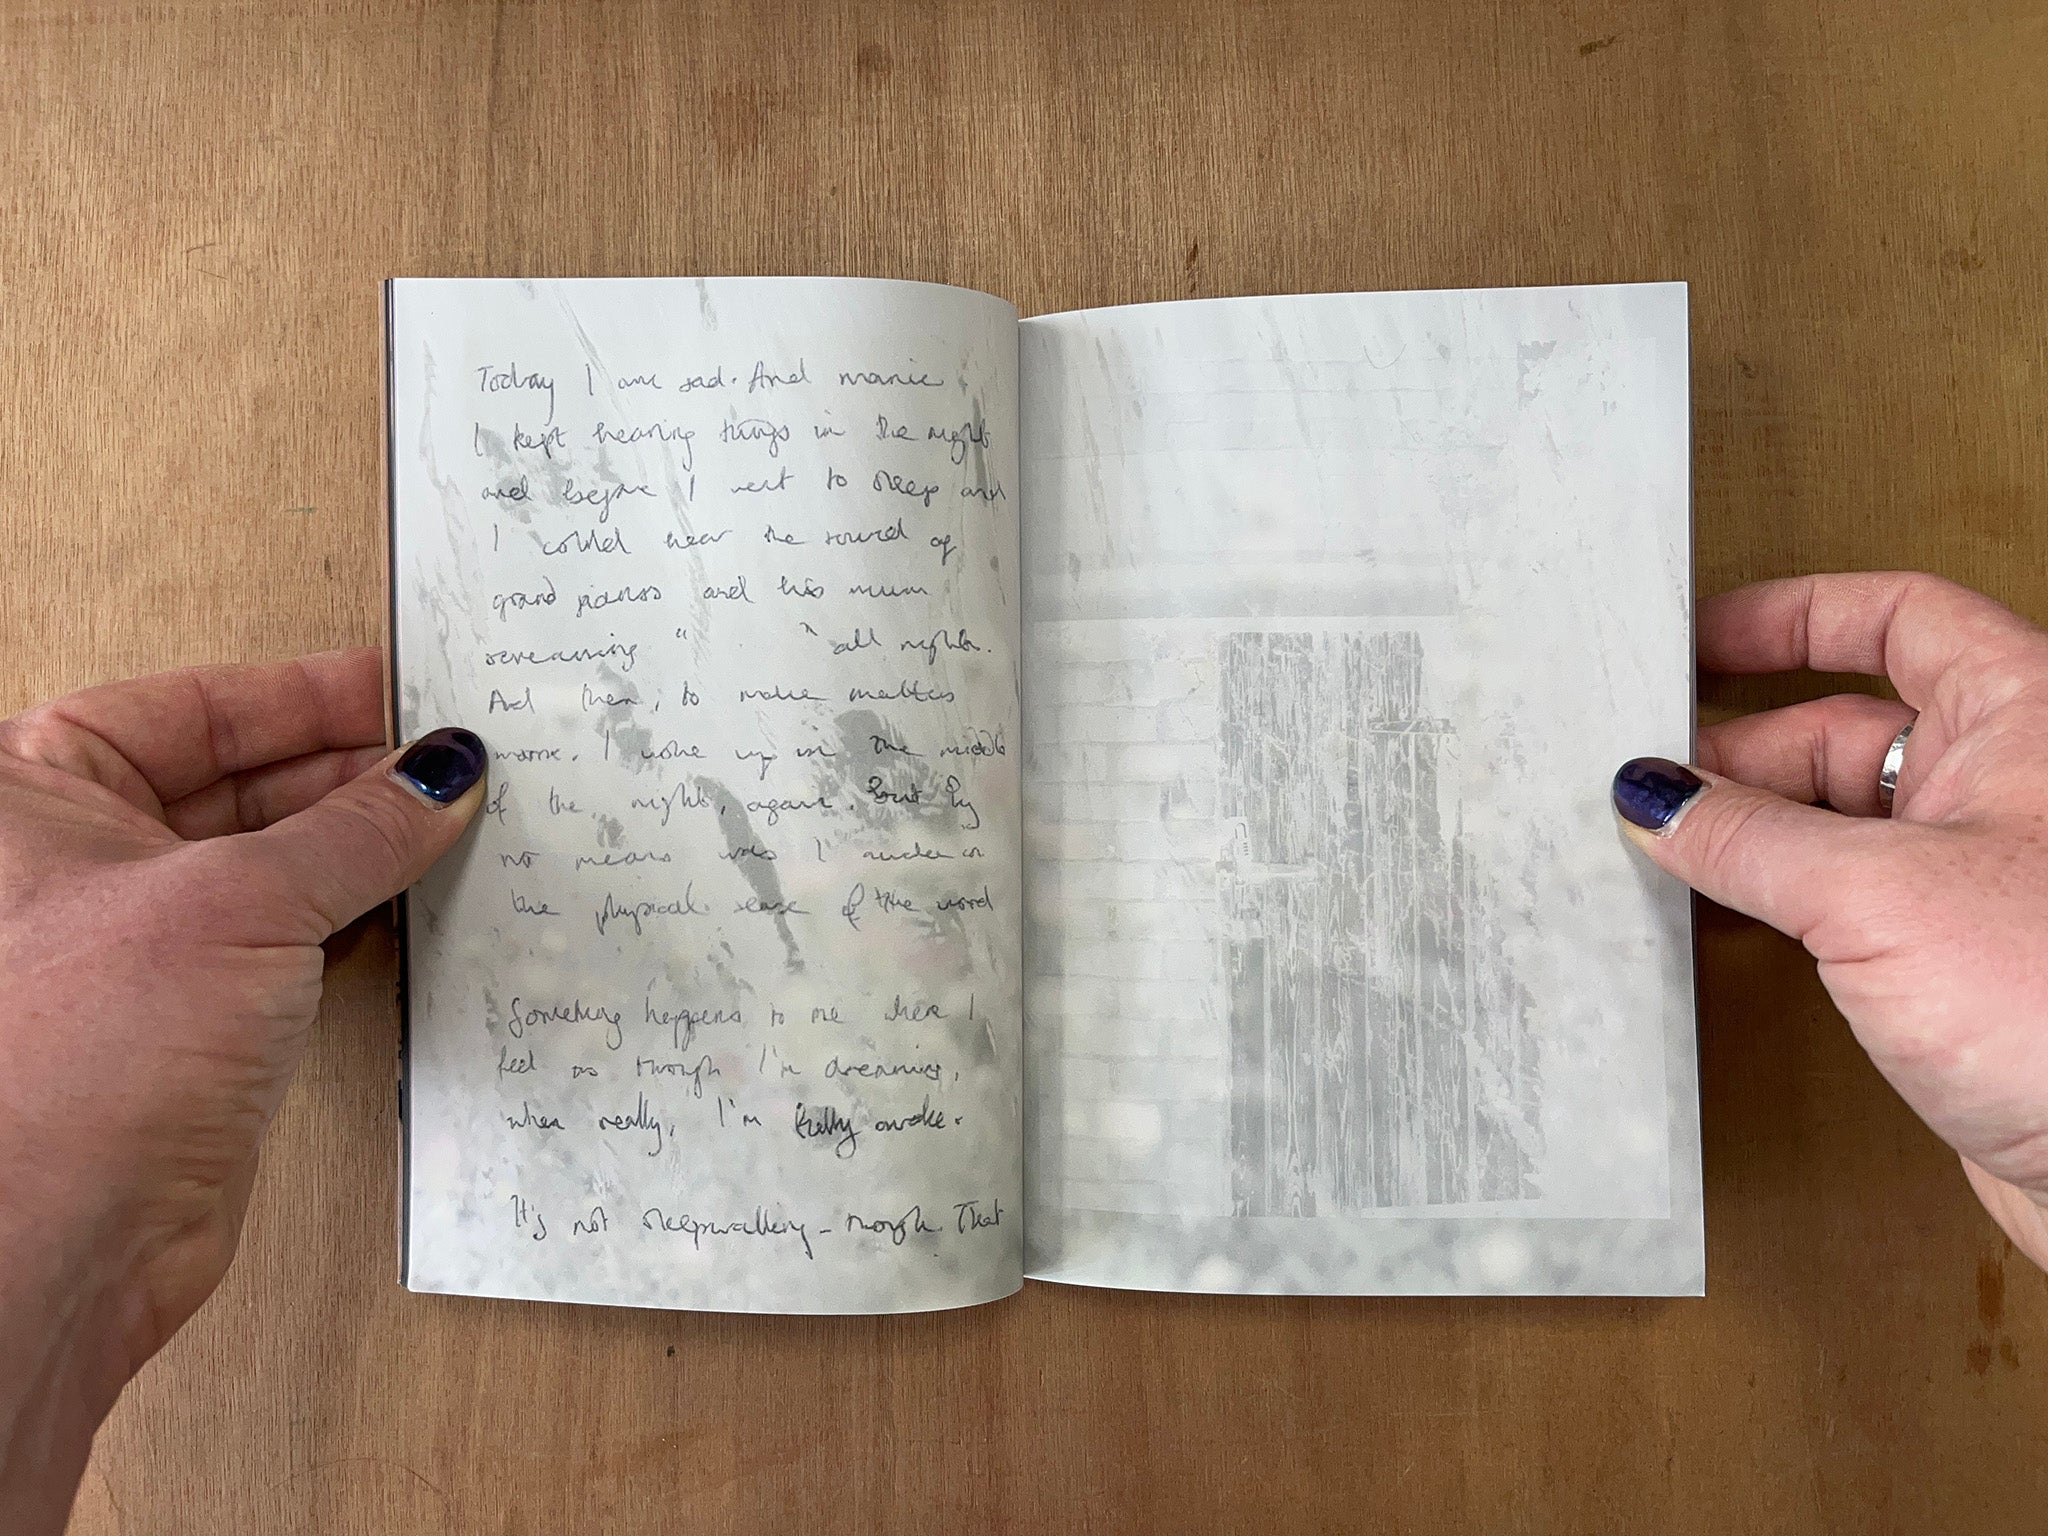 Today I am sad. And manic.
I kept hearing things in the night
and before I went to sleep and
I could hear the sound of
grand pianos and his mum
screaming "          " all night.
And then, to make matters
worse. I woke up in the middle
of the night, again. But by
no means was I awake in
the physical sense of the word
Something happens to me where I
feel as though I'm dreaming,
when really, I'm fully awake.
It's not sleepwalking - though. That